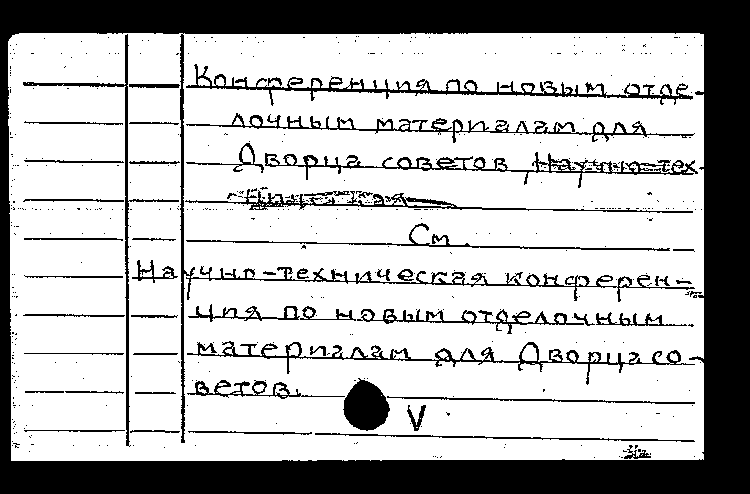 Конференция по новым отде-
лочным материалам для
Дворца советов, Научно-тех-
ническая
См.
Научно-техническая конферен-
ция по новым отделочным
материалам для Дворца со-
ветов.
V